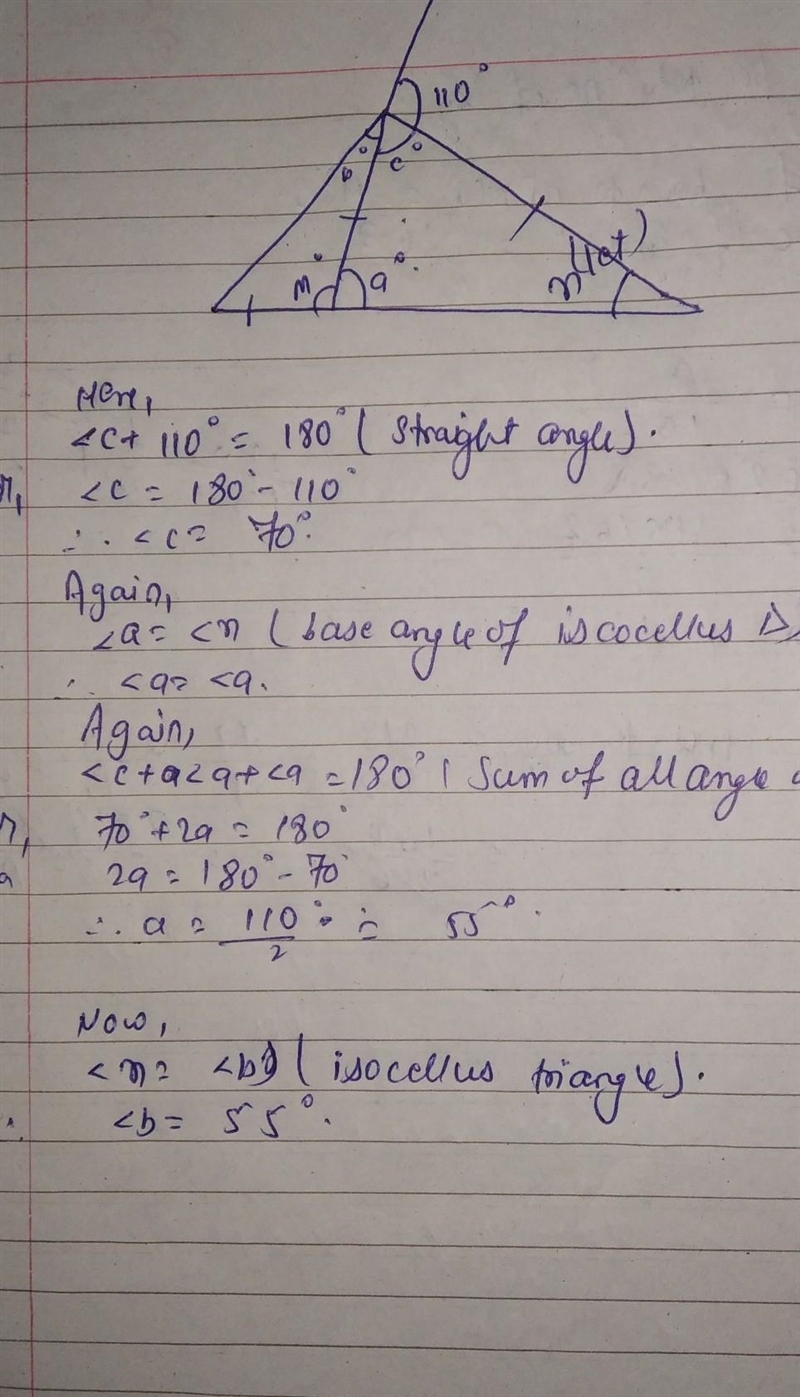 110°
b° c°
m° a° n (let)
Here,
<c + 110° = 180° ( straight angle).
<c = 180° - 110°
∴ <c = 70°.
Again,
<a = <n ( base angle of iscocellus Δ
∴ <a = <a.
Again,
<c + a<a + <a = 180° ( Sum of all angle
70° + 2a = 180°
2a = 180° - 70°
∴ a = 110°/2 = 55°.
Now,
<n = <b) ( isocellus triangle).
<b = 55°.